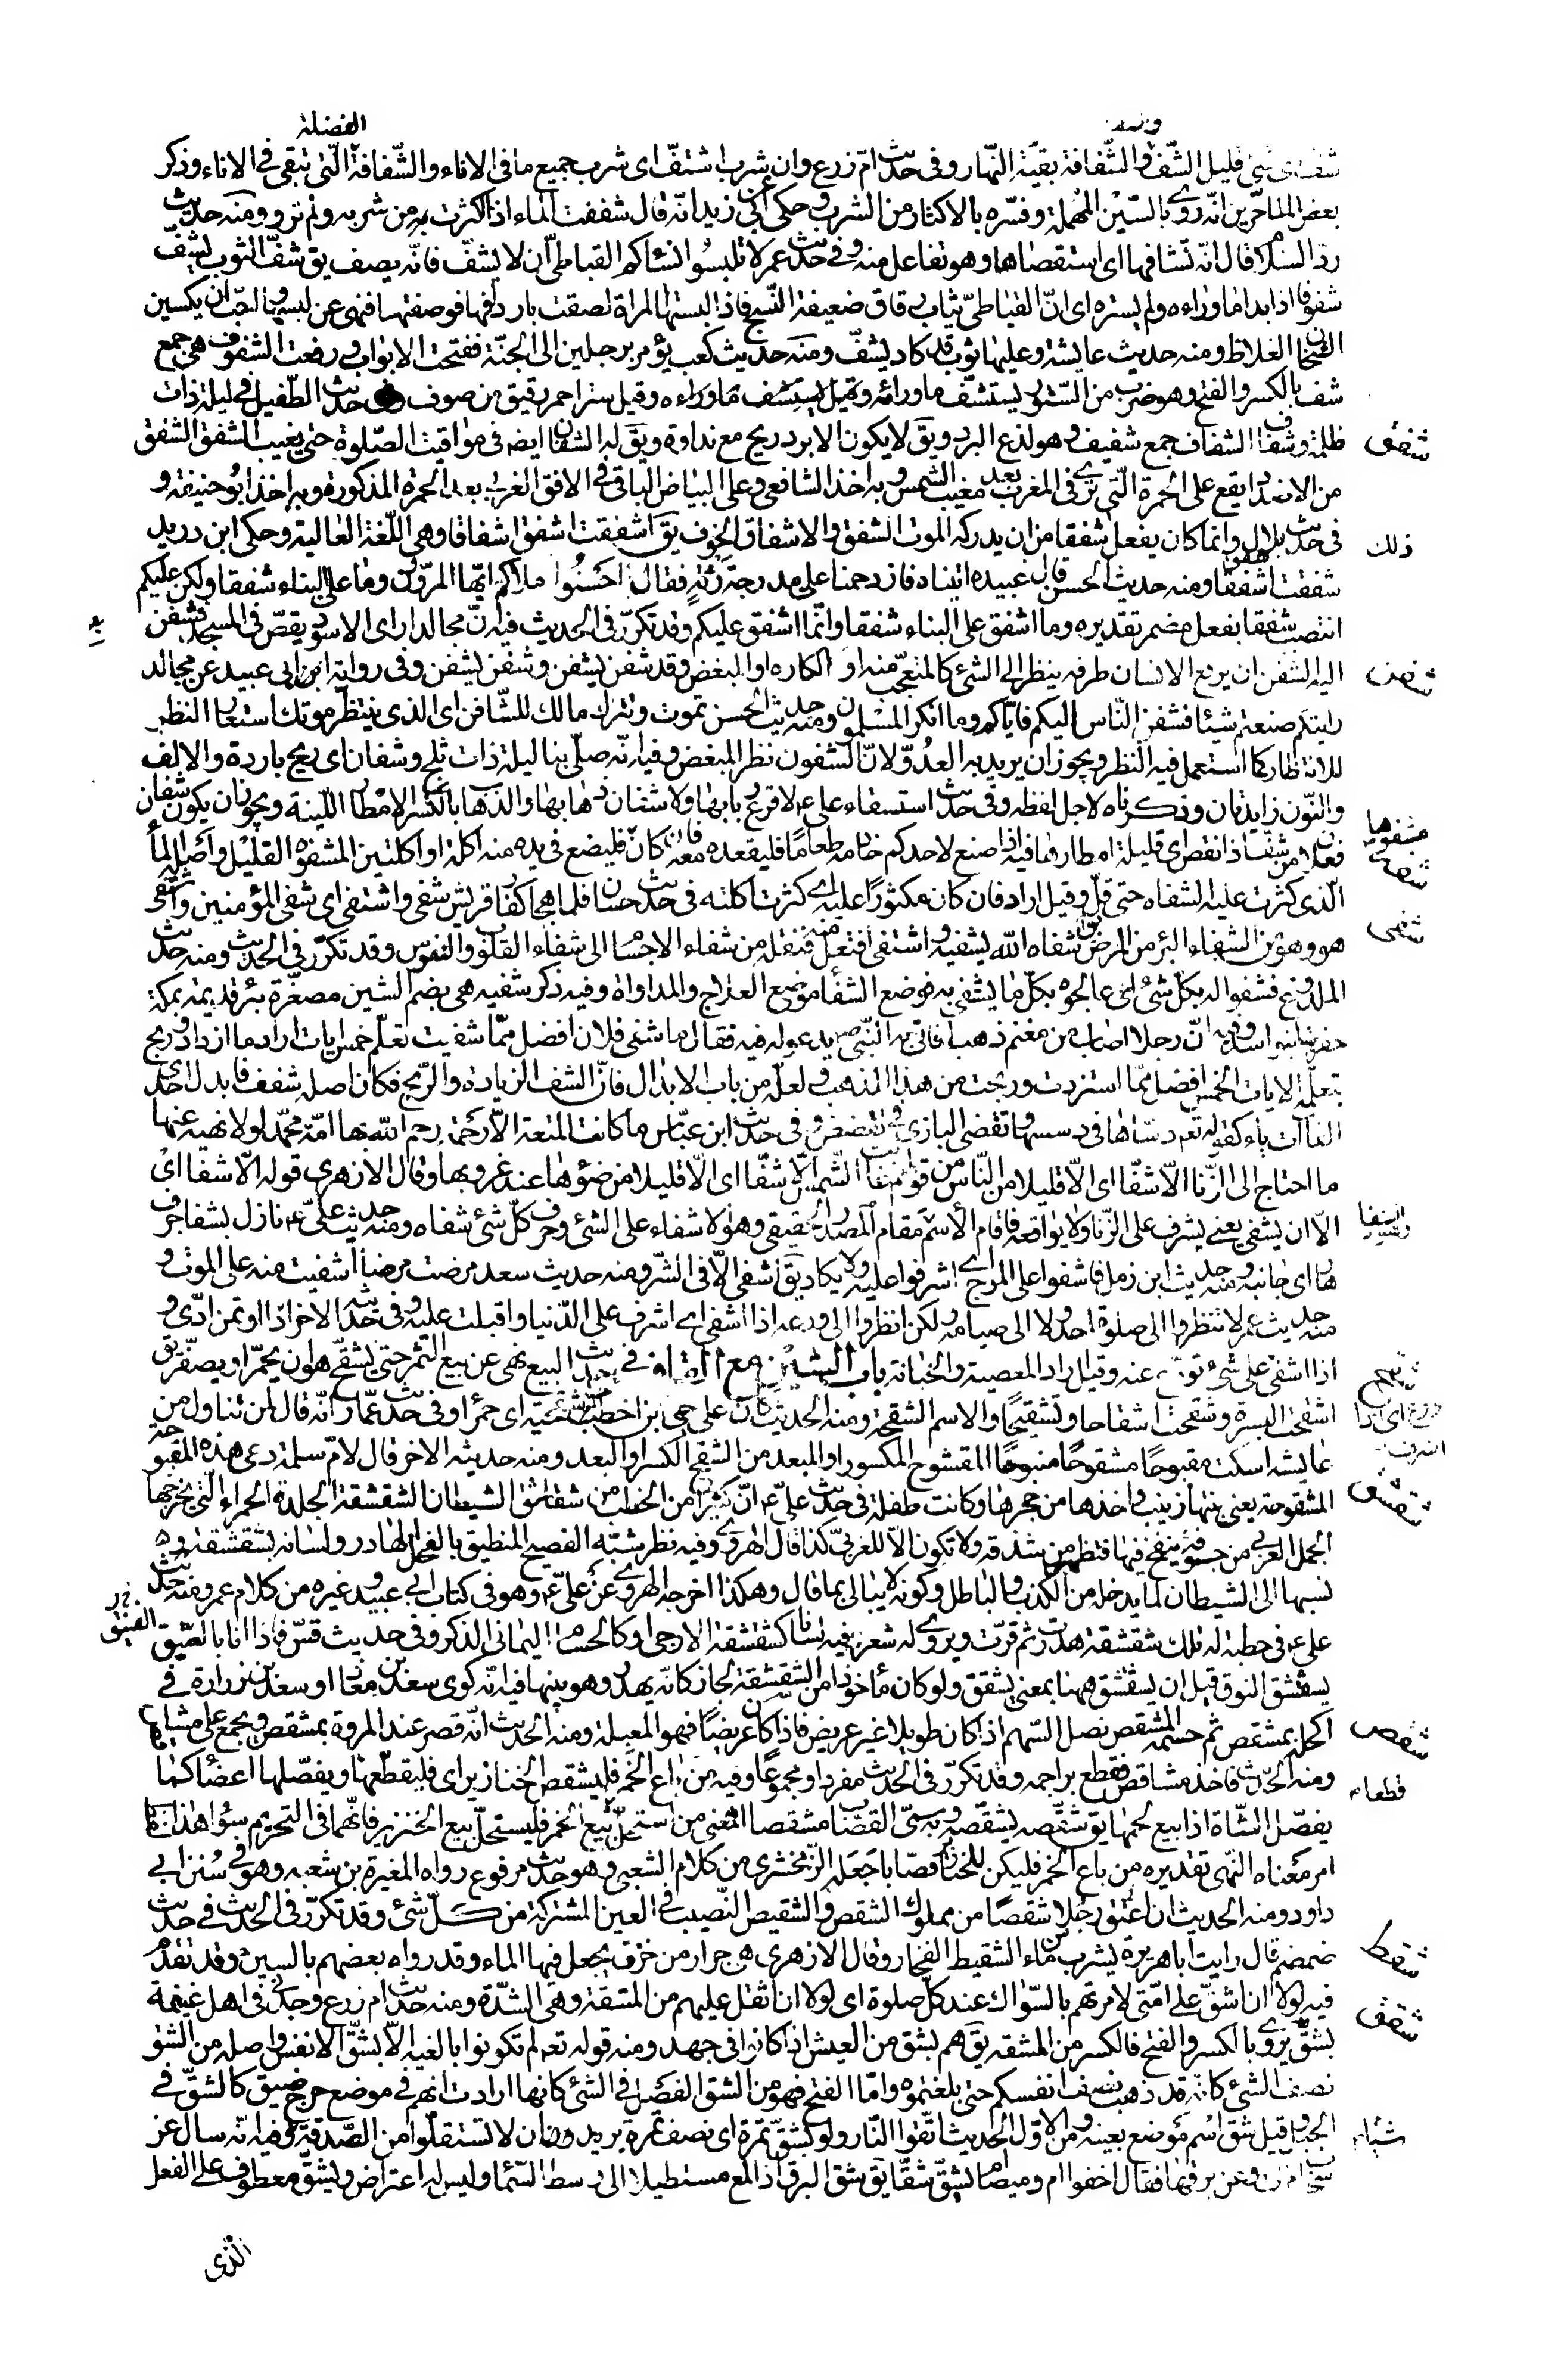 الفضلة
شئ قليل الشّفّ والشّفافة بقيّة النّهار وفى حديث امّ زرع وان شرب اشتفّ اى شرب جميع ما فى الاناء والشّفافة الّتى تبقى فى الاناء وذكر
بعض المتاخّرين انّه روى بالسّين المهملة وفسّره بالاكثار من الشرب وحكى عن ابى زيد انّه قال شففت الماء اذا اكثرت من شربه ولم ترو ومنه حديث
ردّ السّلام قال انّه تشافّها اى استقصاها وهو تفاعل منه وفى حديث عمر لا تلبسوا نساءكم القباطىّ ان لا يشفّ فانّه يصف يق شفّ الثوب يشفّ
شفوفا اذا بدا ما وراءه ولم يستره اى انّ القباطىّ ثياب رقاق ضعيفة النّسج فاذا لبستها المراة لصقت باردافها فوصفتها فنهى عن لبسها واحبّ ان يكسين
الثخان الغلاظ ومنه حديث عايشة وعليها ثوب قد كاد يشفّ ومنه حديث كعب يؤمر برجلين الى الجنّة ففتحت الابواب ورفعت الشفوف هى جمع
شف بالكسر والفتح وهو ضرب من السّتور يستشفّ ما ورائه وقيل ستر احمر رقيق من صوف وفى حديث الطّفيل فى ليلة ذات
ظلمة وشفاف الشفاف جمع شفيف وهو لذع البرد ويق لا يكون الا برد ريح مع نداوة ويق له الشفان ايضا فى مواقيت الصّلوة حتى يغيب الشفق الشفق
شفق
من الاضداد يقع على الحمرة الّتى ترى فى المغرب بعد مغيب الشمس وبه اخذ الشافعى وعلى البياض الباقى فى الافق الغربى بعد الحمرة المذكورة وبه اخذ ابو حنيفة و
فى حديث بلال وانما كان يفعل شفقا من ان يدركه الموت الشفق والاشفاق الخوف يق اشفقت اشفق اشفاقا وهى اللّغة العالية وحكى ابن دريد
ذلك
شفقت اشفق شفقا ومنه حديث الحسن قال عبيدة اتيناه فازدحمنا على مدرجة رثّة فقال احسنوا ملاءكم ايّها المرؤن وما على البناء شفقا ولكن عليكم
انتصب شفقا بفعل مضمر تقديره وما اشفق على البناء شفقا وانّما اشفق عليكم وقد تكرّر فى الحديث فيه انّ مجالدا راى الاسود يقصّ فى المسجد فشفن
اليه الشفن ان يرفع الانسان طرفه ينظر الى الشئ كالمتعجّب منه او الكاره او المبغض وقد شفن يشفن وشفن يشفن وفى رواية ابى عبيد عن مجالد
شفن
رايتكم صنعتم شيئا فشفن النّاس اليكم فايّاكم وما انكر المسلمون ومنه حديث الحسن تموت وتترك مالك للشّافن اى الذى ينتظر موتك استعار النظر
للانتظار كما استعمل فيه النظر ويجوز ان يريد به العدوّ لانّ الشفون نظر المبغض وفيه انّه صلّى بنا ليلة ذات ثلج وشفان اى ريح باردة والالف
والنّون زايدتان وذكرناه لاجل لفظه وفى حديث استسقاء على ع لا قزع ربابها ولا شفان ذهابها والذهاب بالكسر الامطار اللّينة ويجوز ان يكون شفان
فعلان من شفّ اذا نقص اى قليلة امطارها فيه اذا صنع لاحدكم خادمه طعاما فليقعده معه فان كان مشفوها فليضع فى يده منه اكلة او اكلتين المشفوه القليل واصله الماء
شفه
الّذى كثرت عليه الشفاه حتى قلّ وقيل اراد فان كان مكثورا عليه اى كثرت اكلته فى حديث حسان فلما هجا كفّار قريش شفى واشتفى اى شفى المؤمنين واشتفى
شفى
هو وهو من الشفاء البرء من المرض يق شفاه الله يشفيه واشتفى افتعل منه فنقله من شفاء الاجسام الى شفاء القلوب والنفوس وقد تكرّر فى الحديث ومنه حديث
الملدوغ فشفوا له بكلّ شئ اى عالجوه بكلّ ما يشفى به فوضع الشفاء موضع العلاج والمداواة وفيه ذكر شفيه هى بضم الشين مصغّرة بئر قديمة بمكة
حفرتها بنو اسد وفيه انّ رجلا اصاب من مغنم ذهبا فاتى به النّبى ص يدعو له فيه فقال ما شفى فلان افضل ممّا شفيت تعلّم خمس ايات اراد ما ازداد وربح
بتعلّمه الايات الخمس افضل ممّا استزدت وربحت من هذا الذهب ولعلّه من باب الابدال فانّ الشف الزيادة والرّبح فكان اصله شفف فابدل احدى
الفاآت ياء كقوله تعه دسّاها فى دسسها وتقضى البازى فى تقضض وفى حديث ابن عبّاس ما كانت المتعة الّا رحمة رحم الله بها امّة محمّد لولا نهيه عنها
ما احتاج الى الزّنا الّا شفّا اى الّا قليلا من النّاس من قولهم غابت الشّمس الّا شفّا اى الّا قليلا من ضوئها عند غروبها وقال الازهرى قوله الّا شفا اى
الّا ان يشفى يعنى يشرف على الزّنا ولا يواقعه فاقام الاسم مقام المصدر الحقيقى وهو الاشفاء على الشئ وحرف كلّ شئ شفاه ومنه حديث علىّ ع نازل بشفا جرف
هار اى جانبه ومنه حديث ابن زمل فاشفوا على المرج اى اشرفوا عليه ولا يكاد يق اشفى الّا فى الشّرّ ومنه حديث سعد مرضت مرضا اشفيت منه على الموت و
منه حديث عمر لا تنظروا الى صلوة احد ولا الى صيامه ولكن انظروا الى ورعه اذا اشفى اى اشرف على الدّنيا واقبلت عليه وفى حديثه الاخر اذا اوتمن ادّى و
اذا اشفى على شئ تورّع عنه وقيل اراد المعصية والخيانة باب الشين مع القاف فى حديث البيع نهى عن بيع الثمر حتى يشقح هو ان يحمرّ او يصفرّ يق
شقح
اشقحت البسرة وشقحت اشقاحا وتشقيحا والاسم الشقحة ومنه الحديث كان على حيى بن اخطب حلّة شقحيّة اى حمرا وفى حديث عمّار انّه قال لمن تناول من
عايشه اسكت مقبوحا مشقوحا منبوحا المشقوح المكسور او المبعد من الشقح الكسر او البعد ومنه حديثه الاخر قال لامّ سلمة دعى هذه المقبوحة
المشقوحة يعنى بنتها زينب واخذها من حجرها وكانت طفلة فى حديث علىّ ع انّ كثيرا من الخطب من شقاشق الشيطان الشقشقة الجلدة الحمراء الّتى يخرجها
شقشق
الجمل العربى من جوفه ينفخ فيها فتظهر من شدقه ولا تكون الّا للعربىّ كذا قال الهروى وفيه نظر شبّه الفصيح المنطيق بالفحل الهادر ولسانه بشقشقته و
نسبها الى الشيطان لما يدخله من الكذب والباطل وكونه لا يبالى بما قال وهكذا اخرجه الهروى عن علىّ ع وهو فى كتاب ابى عبيد وغيره من كلام عمر ومنه حديث
على ع فى خطبة له تلك شقشقة هدرت ثم قرّت ويروى له شعر فيه لسانا كشقشقة الارحبى او كالحسام اليمانى الذكر وفى حديث قسّ فاذا انا بالفنيق
يشقشق النوق قيل ان يشقشق ههنا بمعنى يشقق ولو كان مأخوذا من الشقشقة لجاز كانّه يهدر وهو بينها فيه انّه كوى سعد بن معاذ او سعد بن زرارة فى
اكحله بمشقص ثم حسمه المشقص نصل السّهم اذا كان طويلا غير عريض فاذا كان عريضا فهو المعبلة ومنه الحديث انّه قصر عند المروة بمشقص ويجمع على مشاقص
شقص
ومنه الحديث فاخذ مشاقص فقطع براجمه وقد تكرّر فى الحديث مفردا ومجموعا وفيه من باع الخمر فليشقص الخنازير اى فليقطّعها ويفصّلها اعضاء كما
يفصّل الشّاة اذا بيع لحمها يق شقّصه يشقّصه وبه سمّى القصّاب مشقصا المعنى من استحلّ بيع الخمر فليستحلّ بيع الخنزير فانّهما فى التحريم سواء وهذا لفظ
امر معناه النّهى تقديره من باع الخمر فليكن للخنازير قصّابا جعله الزّمخشرى من كلام الشعبى وهو حديث مرفوع رواه المغيرة بن شعبه وهو فى سنن ابى
داود ومنه الحديث ان رجلا اعتق شقصا من مملوك الشقص والشقيص النّصيب فى العين المشتركة من كلّ شئ وقد تكرّر فى الحديث فى حديث
ضمضم قال رايت ابا هريرة يشرب من ماء الشقيط الشقيط الفخار وقال الازهرى هى جرار من خزف يجعل فيها الماء وقد رواه بعضهم بالسين وقد تقدّم
شقط
فيه لولا ان اشقّ على امّتى لامرتهم بالسّواك عند كلّ صلوة اى لولا ان اثقل عليهم من المشقة وهى الشدّة ومنه حديث ام زرع وجدنى فى اهل غنيمة
شقق
بشقّ يروى بالكسر والفتح فالكسر من المشقه يق هم بشق من العيش اذا كانوا فى جهد ومنه قوله تعه لم تكونوا بالغيه الّا بشقّ الانفس واصله من الشق
نصف الشئ كانّه قد ذهب نصف انفسكم حتى بلغتموه وامّا الفتح فهو من الشق الفصل فى الشئ كانها ارادت انهم فى موضع حرج ضيق كالشقّ فى
الجبل وقيل شق اسم موضع بعينه ومن الاوّل الحديث اتّقوا النّار ولو بشقّ تمرة اى نصف تمرة يريد ان لا تستقلّوا من الصّدقة وفيه انّه سال عن
سحائب مرّت وعن برقها فقال اخفوا ام وميضا ام يشقّ شقّا يق شق البرق اذا لمع مستطيلا الى وسط السّماء وليس له اعتراض ويشقّ معطوف على الفعل
الذى